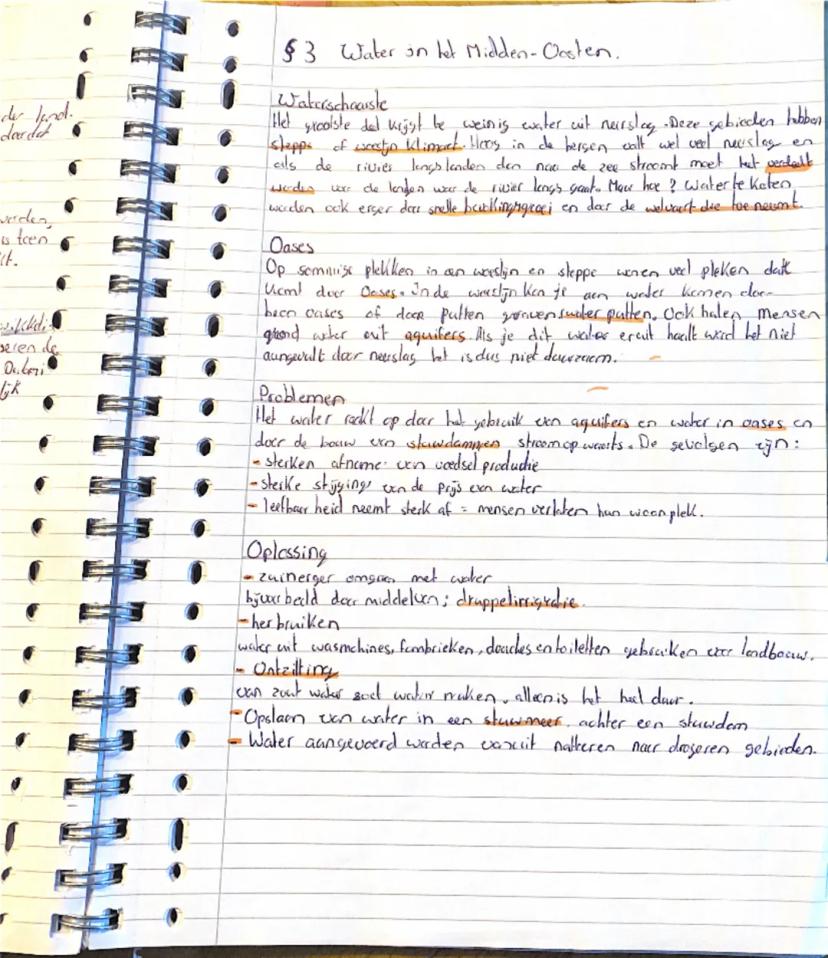 § 3 Water in het Midden-Oosten.
Waterschaarste
Het grootste deel krijgt te weinig water uit neerslag. Deze gebieden hebben
steppe of woestijn klimaat. Hoog in de bergen valt wel veel neerslag en
als de rivier langs landen den naar de zee stroomt moet het verdeelt
worden voor de landen waar de rivier langs gaat. Maar hoe? Water te korten
worden ook erger door snelle bevolkingsgroei en door de welvaart die toe neemt.
Oases
Op sommige plekken in een woestijn en steppe wonen veel dat
komt door Oases. In de woestijn kan je aan water komen door
een oases of door putten graven waterputten. Ook halen mensen
grond water uit aquifers. Als je dit water eruit haalt word het niet
aangevult door neerslag het is dus niet duurzaam.
Problemen
Het water raakt op door het gebruik van aquifers en water in oases en
door de bouw van stuwdammen stroomopwaarts. De gevolgen zijn:
- sterken afname van voedsel productie
- sterke stijging van de prijs van water
- leefbaar heid neemt sterk af = mensen verlaten hun woonplek.
Oplossing
- zuinerger omgaan met water
bijvoorbeeld door middel van; druppelirrigratie.
- herbruiken
water uit wasmachines, fambrieken, douches en toiletten gebruiken voor landbouw.
- Ontzilting
van zout water zoet water maken, alleen is het heel duur.
- Opslaan van water in een stuwmeer achter een stuwdam
- Water aangevoerd worden vanuit natteren naar drogeren gebieden.
der land.
doordat
worden,
is toen